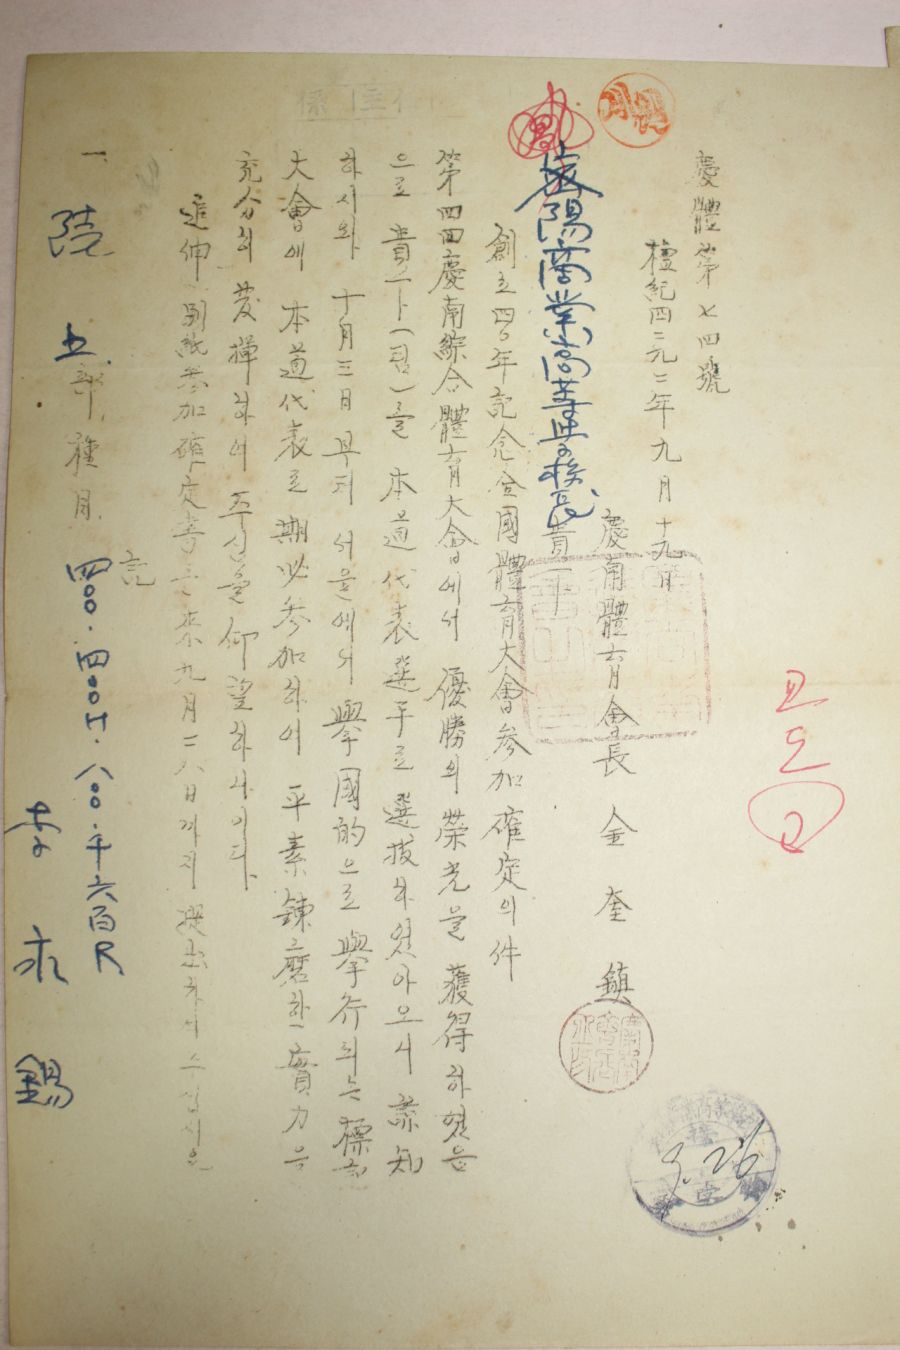 慶體第七四號
檀紀四二九二年九月十九日
慶南體育會長 金奎鎭
密陽商業高等學校長 貴下
創立四〇年記念全國體育大會参加確定의件
第四回慶南綜合體育大會에서 優勝의 榮光을 獲得하였음
으로 貴下(팀)를 本道代表選手로 選拔하였아오니 諒知
하시와 十月三日부터 서울에서 擧國的으로 擧行되는 標記
大會에 本道代表로 期必参加하여 平素鍊磨한 實力을
充分히 發揮하여 주심을 仰望하나이다
追伸 別紙参加確定書는 來九月二八日까지 提出하여 주십시요
記
一 陸上部, 種目, 四〇〇·四〇〇H·八〇〇·千六百R
李永錫
보고
9.26